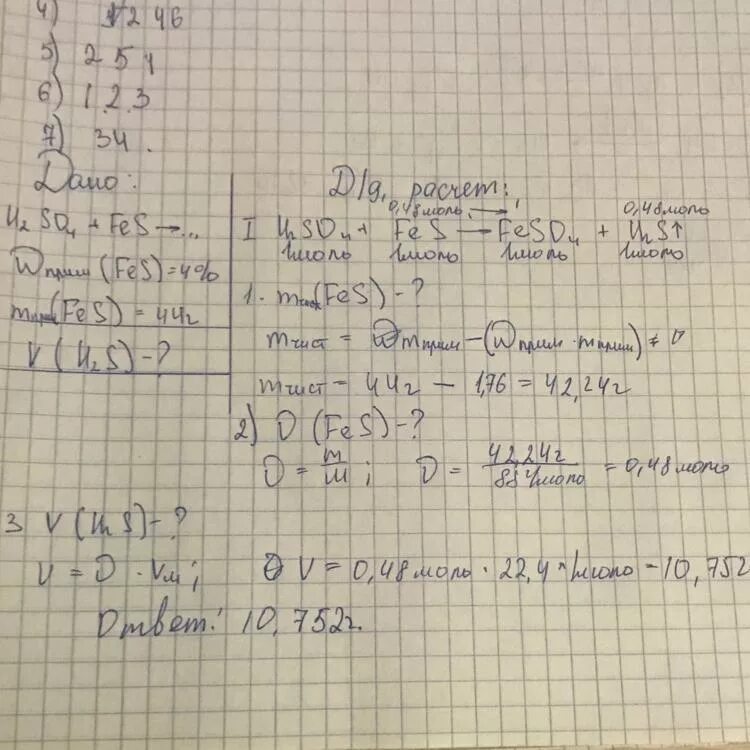 4) 1246
5) 2 5 1
6) 1 2 3
7) 34.
Дано:
H₂SO₄ + FeS →...
Wприм (FeS) = 4%
m (FeS) = 44г
V (H₂S) - ?
Д/д, расчет:
0,48моль → 0,48моль
I H₂SO₄ + FeS → FeSO₄ + H₂S↑
1моль 1моль 1моль 1моль
1. m (FeS) - ?
mчист = mприм - (Wприм · mприм)
mчист = 44г - 1,76 = 42,24г
2) ν (FeS) - ?
ν = m/M; ν = 42,24г / 88г/моль = 0,48моль
3 V (H₂S) - ?
V = ν · Vм; V = 0,48моль · 22,4 л/моль = 10,752
Ответ: 10,752г.